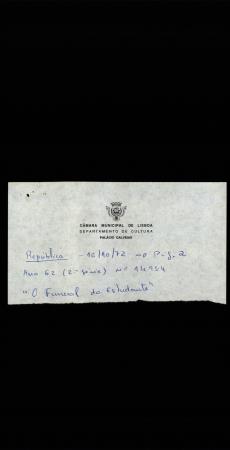 CÂMARA MUNICIPAL DE LISBOA
DEPARTAMENTO DE CULTURA
PALÁCIO GALVEIAS
República - 12/10/72 - nº P-g. 2
Ano 62 (2ª série) nº 14954
"O Funeral do Estudante"